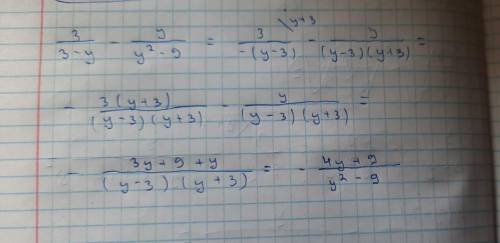 3/(3-y) - y/(y²-9) = 3/(-(y-3)) \y+3 - y/((y-3)(y+3)) =
- 3(y+3)/((y-3)(y+3)) - y/((y-3)(y+3)) =
- (3y+9+y)/((y-3)(y+3)) = - (4y+9)/(y²-9)